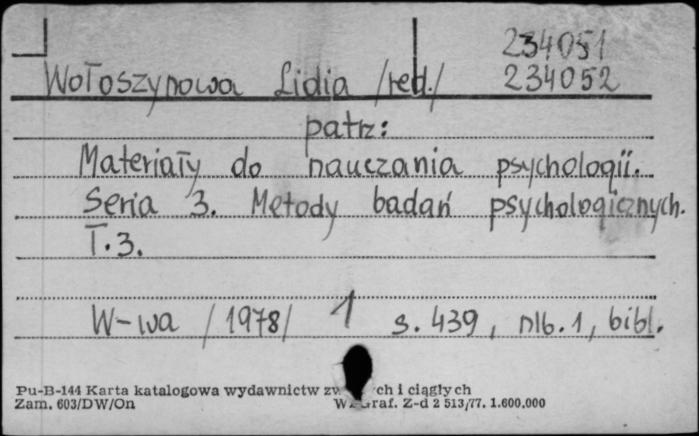 234051
Wołoszynowa Lidia /red./ 234052
patrz:
Materiały do nauczania psychologii.
Seria 3. Metody badań psychologicznych.
T.3.
W-wa /1978/ 1 s. 439, nlb. 1, bibl.
Pu-B-144 Karta katalogowa wydawnictw ch i ciągłych
Zam. 603/DW/On Z-d 2 513/77. 1.600.000